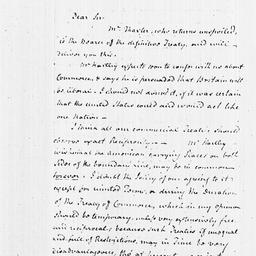 Dear Sir
Mr Thaxter, who returns unexpected,
is the Bearer of the definitive Treaty, and will
deliver you this.
Mr Hartley expects soon to confer with me about
Commerce, & says he is persuaded that Britain will
be liberal. I should not doubt it, if it was certain
that the united States could and would act like
one Nation —
I think all our commercial Treaties should
observe exact Reciprocity — Mr Hartley
the american carrying places on both
sides of the boundary line, may be in common
forever. I doubt the Policy of our agreeing to it
except for limited Term, or during the Duration
of the Treaty of Commerce, which in my opinion
should be temporary, unless very extensively free
and reciprocal; because such Treaties if unequal
and full of Restrictions, may in Time be very
disadvantageous, tho' at present